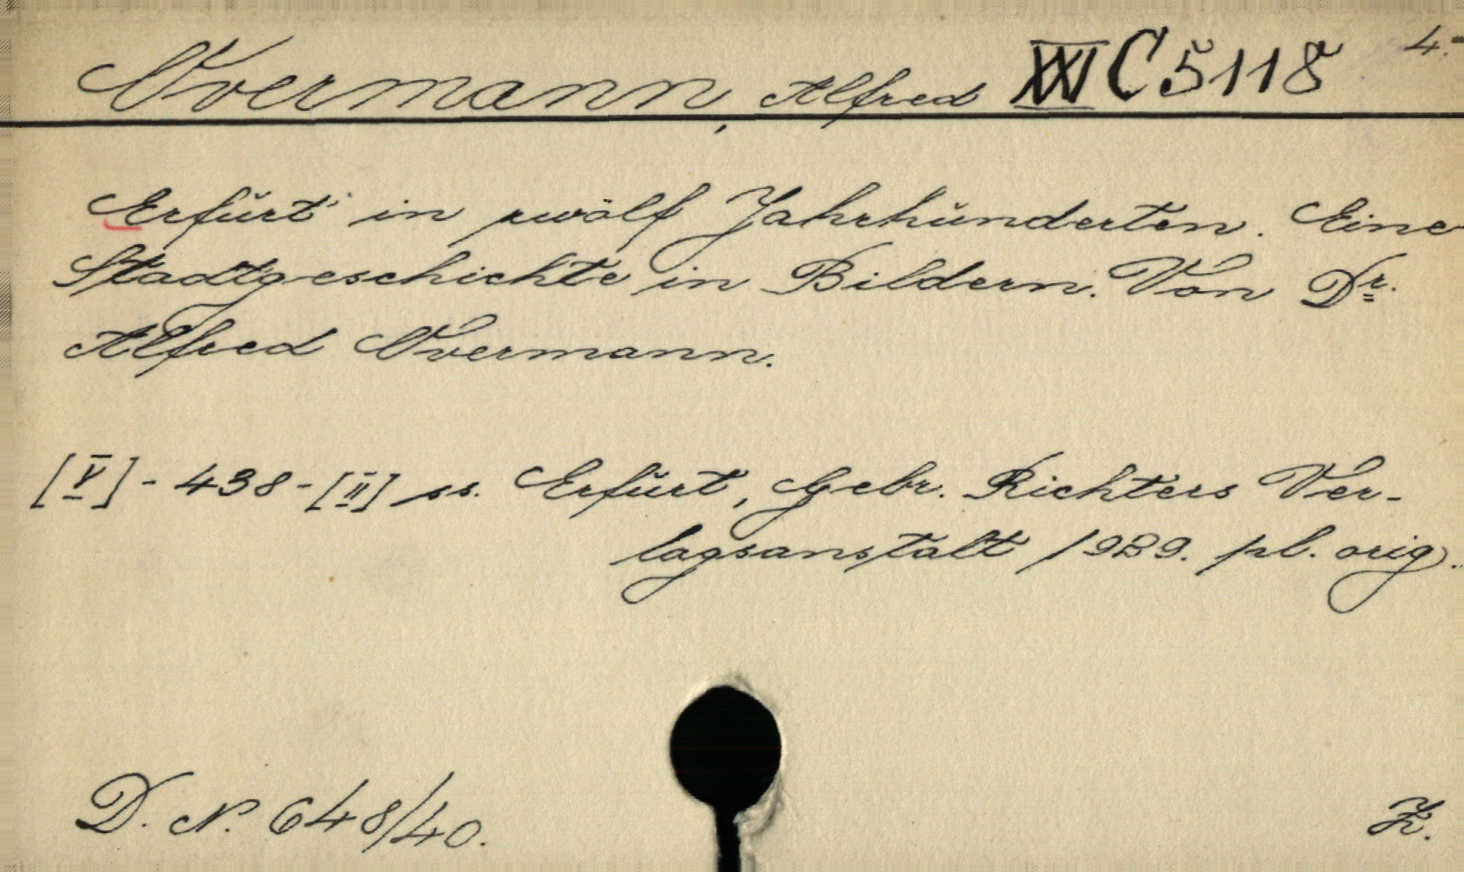 Overmann, Alfred XXV C 5118 4.-
Erfurt in zwölf Jahrhunderten. Eine
Stadtgeschichte in Bildern. Von Dr.
Alfred Overmann.
[V] - 438 - [II] ss. Erfurt, Gebr. Richters Ver-
lagsanstalt 1929. pl. orig.
D. N. 648/40.